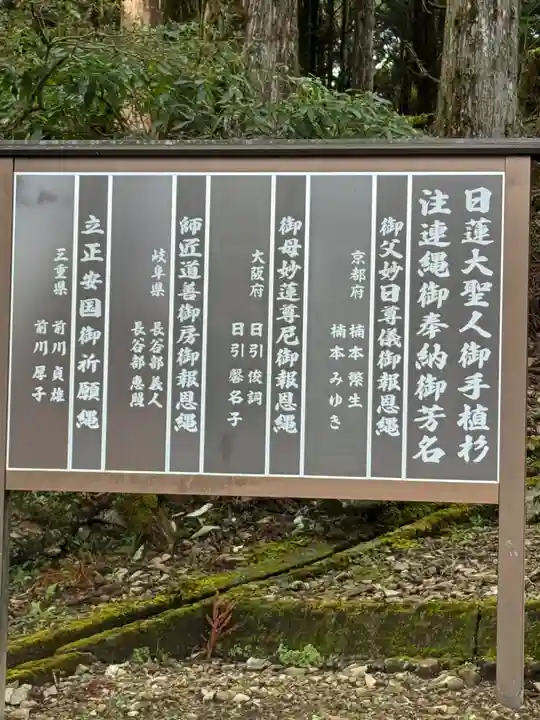 日蓮大聖人御手植杉
注連縄御奉納御芳名
御父妙日尊儀御報恩縄
京都府 楠本繁生
楠本みゆき
御母妙蓮尊尼御報恩縄
大阪府 日引俊詞
日引馨名子
師匠道善御房御報恩縄
岐阜県 長谷部義人
長谷部惠照
立正安国御祈願縄
三重県 前川貞雄
前川厚子